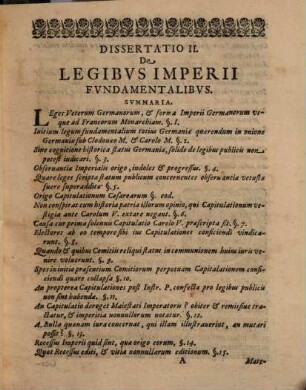 DISSERTATIO II.
De
LEGIBVS IMPERII
FVNDAMENTALIBVS.
SVMMARIA.
Leges Veterum Germanorum, & forma Imperii Germanorum us-
que ad Francorum Monarchiam, §. 1.
Initium legum fundamentalium totius Germaniæ quærendum in unione
Germaniæ sub Clodoveo M. & Carolo M. §. 2.
Sine cognitione historica statûs Germaniæ, solidè de legibus publicis non
potest judicari. §. 3.
Observantiæ Imperialis origo, indoles & progressus. §. 4.
Quare leges scriptæ statum publicum concernentes observantia vetusta
fuere superadditæ §. 5.
Origo Capitulationum Cæsarearum §. eod.
Non conspirat cum historia patria illorum opinio, qui Capitulationum ve-
stigia ante Carolum V. extare negant. §. 6.
Causa cur prima solennis Capitulatio Carolo V. præscripta sit. §. 7.
Electores ab eo tempore sibi jus Capitulationes conficiendi vindica-
runt. §. 8.
Quando & quibus Comitiis reliqui status in communionem hujus juris ve-
nire voluerunt. §. 9.
Spes in initio præsentium Comitiorum perpetuam Capitulationem confi-
ciendi quare collapsa §. 10.
An propterea Capitulationes post Instr. P. confectæ pro legibus publicis
non sint habendæ. §. 11.
An Capitulatio deroget Majestati Imperatoris? obiter & remissivè tra-
ctatur, & imperitia nonnullorum notatur. §. 12.
A. Bulla quonam jura concernat, qui illam illustraverint, an mutari
possit? §. 13.
Recessus Imperii quid sint, quæ origo eorum, §. 14.
Quot Recessus editi, & vitia nonnullarum editionum. §. 15.
A